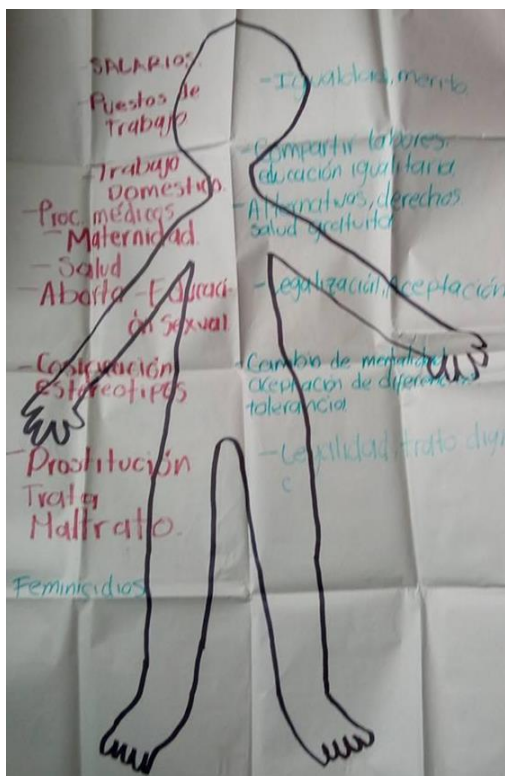 -SALARIOS.
-Puestos de
Trabajo
-Trabajo
Domestico.
-Proc. médicos
-Maternidad.
-Salud
-Aborto -Educaci-
ón Sexual
-Cosificación
Estereotipos
-Prostitución
Trata
Maltrato.
Feminicidios
-Igualdad, merito
-Compartir labores,
educación igualitaria
-Alternativas, derechos
salud gratuita
-Legalización, Aceptación
-Cambio de mentalidad
aceptación de
tolerancia
-Legalidad, trato